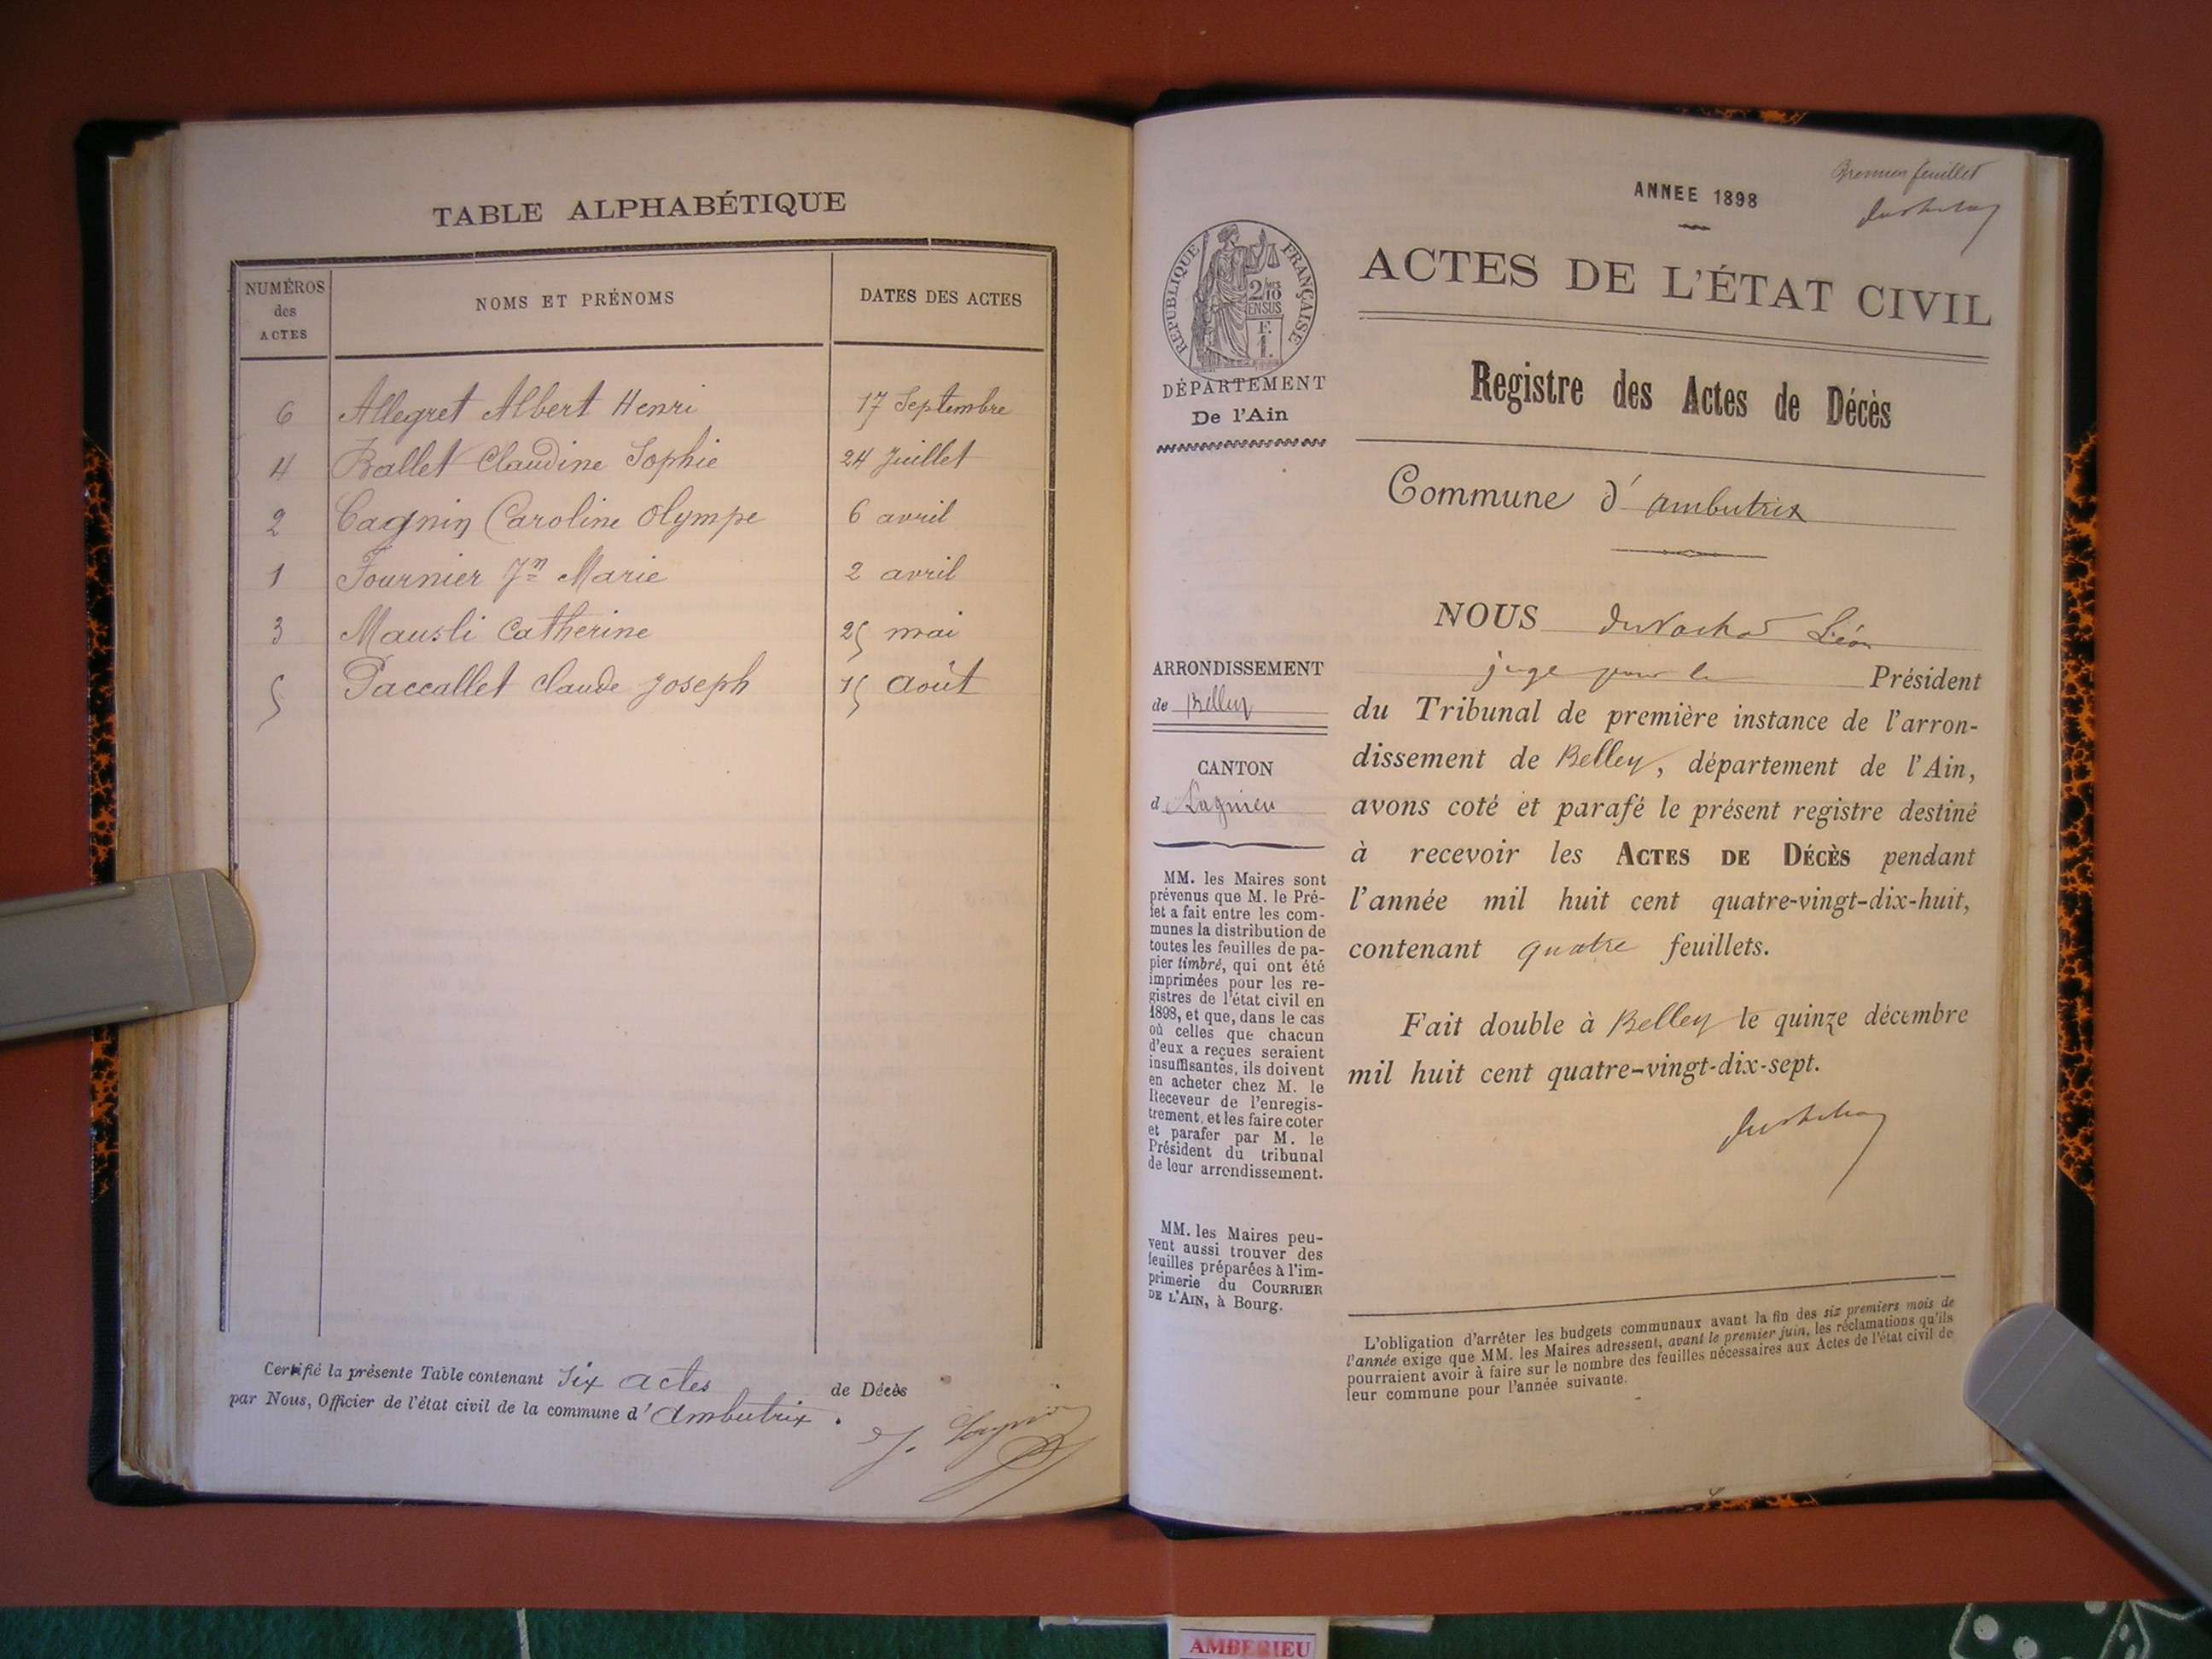 TABLE ALPHABÉTIQUE
NUMÉROS
des
ACTES
NOMS ET PRÉNOMS
DATES DES ACTES
6 Allegret Albert Henri 17 Septembre
4 Ballet Claudine Sophie 24 Juillet
2 Cagnin Caroline Olympe 6 avril
1 Fournier Jn Marie 2 avril
3 Mausli Catherine 25 mai
5 Paccallet Claude Joseph 15 Août
Certifié la présente Table contenant Six actes de Décès
par Nous, Officier de l'état civil de la commune d'Ambutrix.
Premier feuillet
ANNEE 1898
RÉPUBLIQUE FRANÇAISE
2/10
EN SUS
F.
1.
ACTES DE L'ÉTAT CIVIL
DÉPARTEMENT
De l'Ain
Registre des Actes de Décès
Commune d'ambutrix
ARRONDISSEMENT
de Belley
CANTON
d Lagnieu
MM. les Maires sont
prévenus que M. le Pré-
fet a fait entre les com-
munes la distribution de
toutes les feuilles de pa-
pier timbré, qui ont été
imprimées pour les re-
gistres de l'état civil en
1898, et que, dans le cas
où celles que chacun
d'eux a reçues seraient
insuffisantes, ils doivent
en acheter chez M. le
Receveur de l'enregis-
trement, et les faire coter
et parafer par M. le
Président du tribunal
de leur arrondissement.
MM. les Maires peu-
vent aussi trouver des
feuilles préparées à l'im-
primerie du COURRIER
DE L'AIN, à Bourg.
NOUS Léon
juge pour le Président
du Tribunal de première instance de l'arron-
dissement de Belley, département de l'Ain,
avons coté et parafé le présent registre destiné
à recevoir les ACTES DE DÉCÈS pendant
l'année mil huit cent quatre-vingt-dix-huit,
contenant quatre feuillets.
Fait double à Belley le quinze décembre
mil huit cent quatre-vingt-dix-sept.
L'obligation d'arrêter les budgets communaux avant la fin des six premiers mois de
l'année exige que MM. les Maires adressent, avant le premier juin, les réclamations qu'ils
pourraient avoir à faire sur le nombre des feuilles nécessaires aux Actes de l'état civil de
leur commune pour l'année suivante.
AMBERIEU